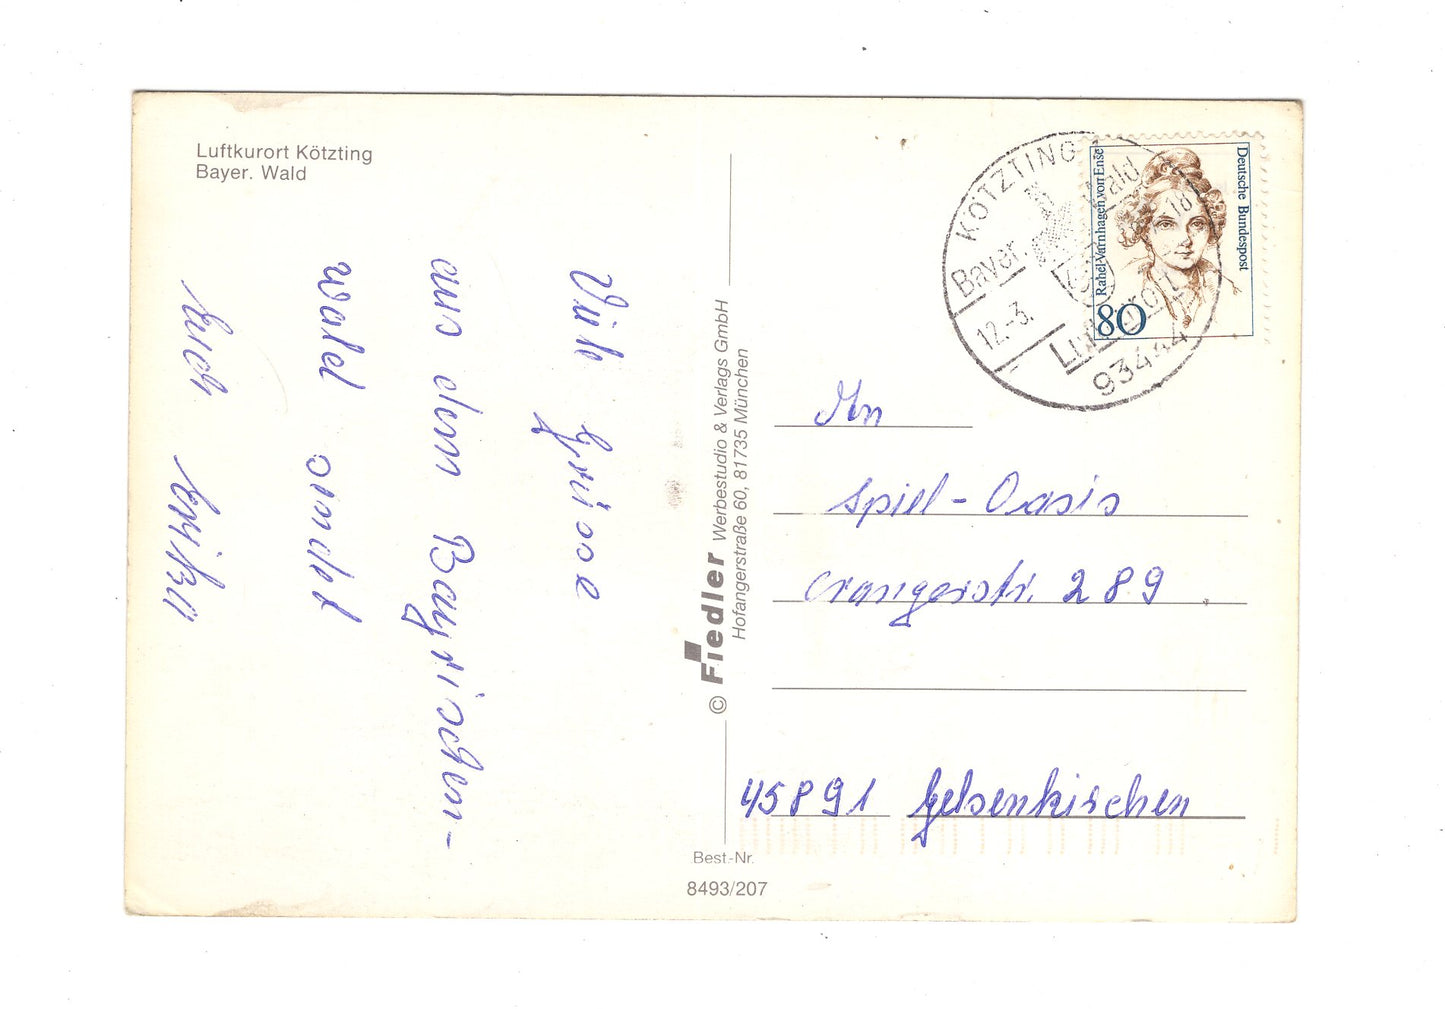 Luftkurort Kötzting
Bayer. Wald
Viele Grüsse
aus dem Bayrischen-
wald sendet
Euch
© Fiedler Werbestudio & Verlags GmbH
Hofangerstraße 60, 81735 München
Best.-Nr.
8493/207
KÖTZTING
Bayer. Wald
12.-3. -18
Luftkurort
93444
Rahel Varnhagen von Ense
Deutsche Bundespost
80
An
Spiel-Oasis
Crangerstr. 289
45891 Gelsenkirchen